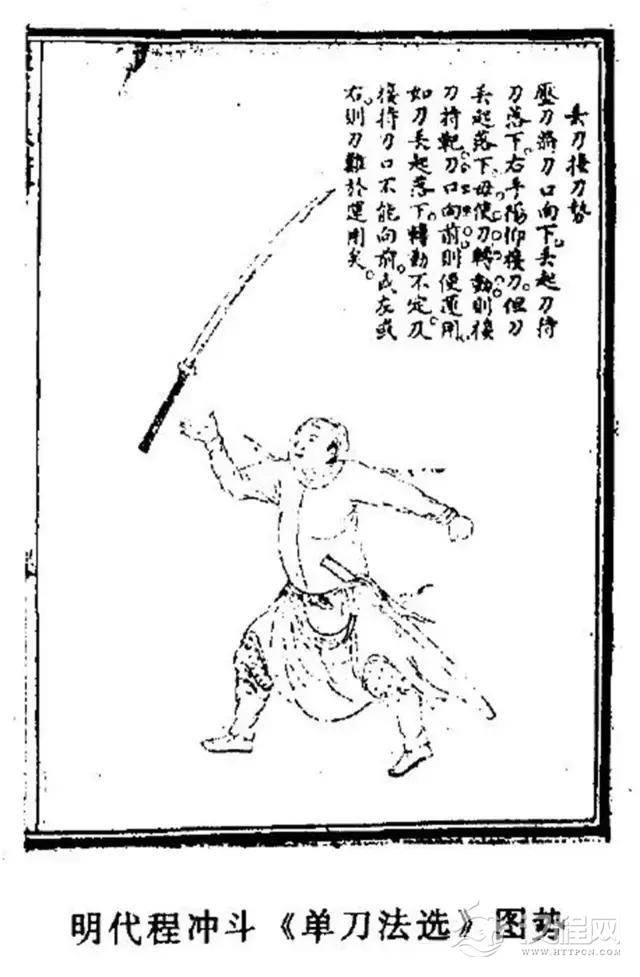 丢刀接刀勢
壓刀將刀口向下。丢起刀待
刀落下。右手陽仰接刀。但刀
丢起落下。毋使刀轉動則接
刀持靶。刀口向前則便運用。
如刀丢起落下。轉動不定。及
接持刀口不能向前。或左或
右。則刀難於運用矣。
明代程冲斗《单刀法选》图势
汉程网
WWW.HTTPCN.COM